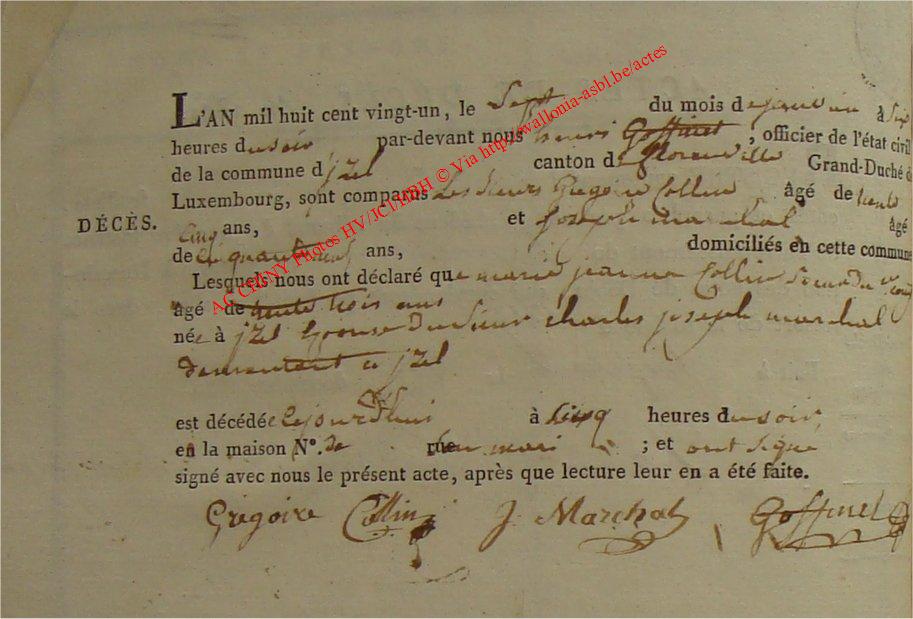 L'AN mil huit cent vingt-un, le Sept du mois de janvier à Six
heures du soir par-devant nous henri Goffinet, officier de l'état civil
de la commune d'jzel canton de florenville Grand-Duché d
Luxembourg, sont comparus Les Sieurs Gregoire Collin âgé de trente
Cinq ans, et Joseph marchal âgé
DÉCÈS.
de ans, domiciliés en cette commune
Lesquels nous ont déclaré que marie jeanne Collin Soeur du
âgé de trente trois ans
née à jzel Epouse du Sieur charles joseph marchal
demeurant a jzel
est décédée cejourd'hui à Cinq heures du soir
en la maison N°. de rue mari ; et ont Signé
signé avec nous le présent acte, après que lecture leur en a été faite.
Gregoire Collin J. Marchal Goffinet
AC CHINY Photos HV/JCl/ABH © Via http://wallonia-asbl.be/actes